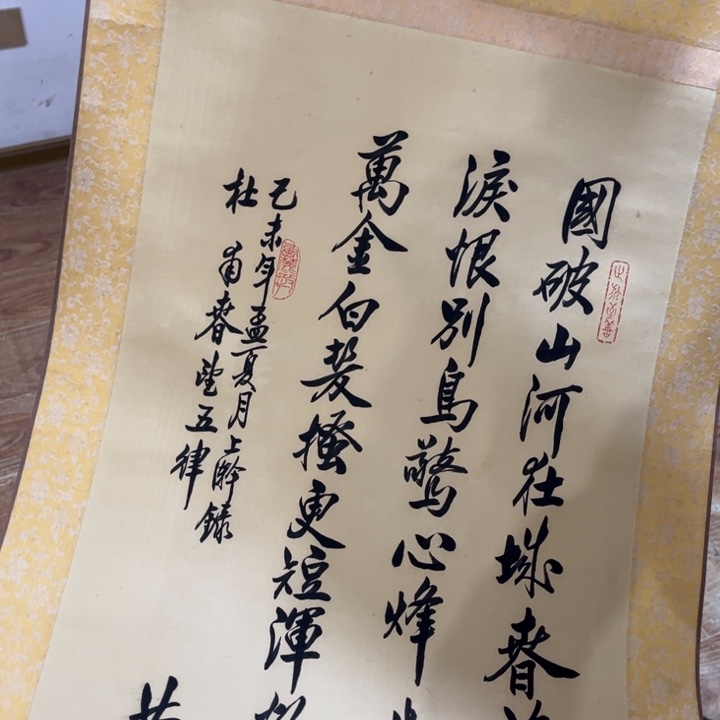 國破山河在城春
淚恨別鳥驚心烽
萬金白髮搔更短渾
乙未年孟夏月上齡錄
杜甫春望五律